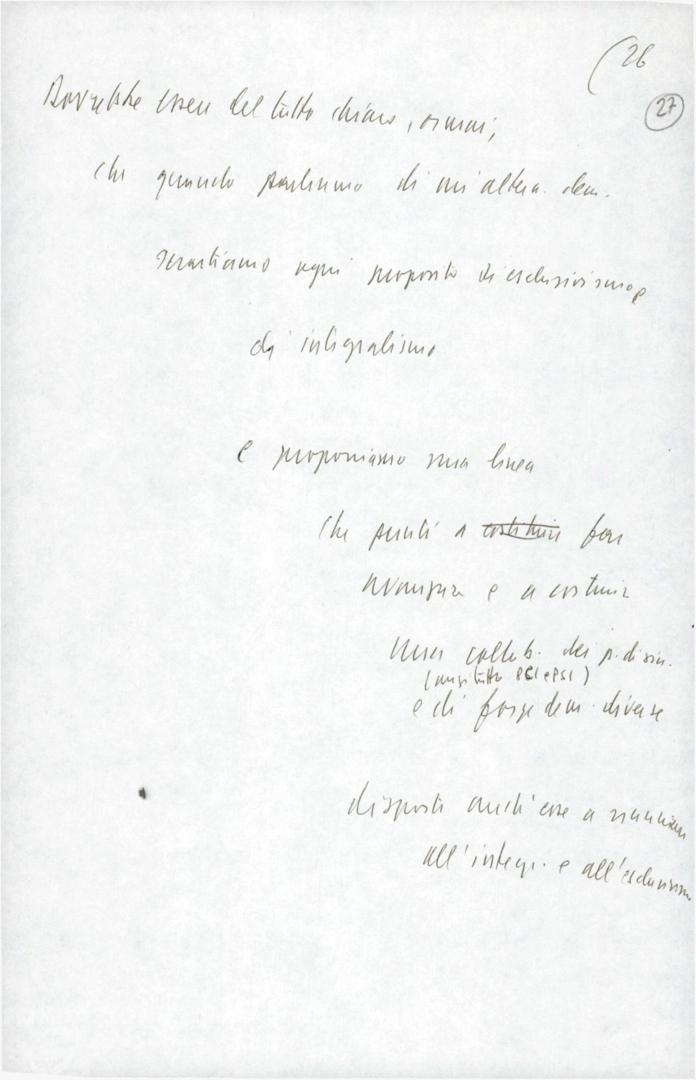 (26
27
Dovrebbe essere del tutto chiaro, ormai,
che quando parliamo di un'altern. dem.
scartiamo ogni proposito di esclusivismo e
di integralismo
e proponiamo una linea
che punti a costruire far
avanzare e a costruire
una collab. dei p. di sin.
(anzitutto PCI e PSI)
e di forze dem. diverse
disposte anch'esse a rinunciare
all'integr. e all'esclusivismo